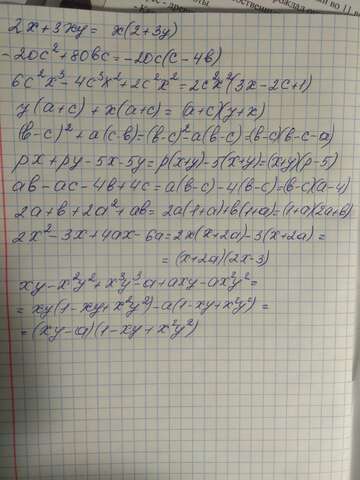 2x + 3xy = x(2+3y)
-20c² + 80bc = -20c(c - 4b)
6c²x³ - 4c³x² + 2c²x² = 2c²x²(3x - 2c + 1)
y(a+c) + x(a+c) = (a+c)(y+x)
(b-c)² + a(c-b) = (b-c)² - a(b-c) = (b-c)(b-c-a)
px + py - 5x - 5y = p(x+y) - 5(x+y) = (x+y)(p-5)
ab - ac - 4b + 4c = a(b-c) - 4(b-c) = (b-c)(a-4)
2a + b + 2a² + ab = 2a(1+a) + b(1+a) = (1+a)(2a+b)
2x² - 3x + 4ax - 6a = 2x(x+2a) - 3(x+2a) =
= (x+2a)(2x-3)
xy - x²y² + x³y³ - a + axy - ax²y² =
= xy(1 - xy + x²y²) - a(1 - xy + x²y²) =
= (xy - a)(1 - xy + x²y²)